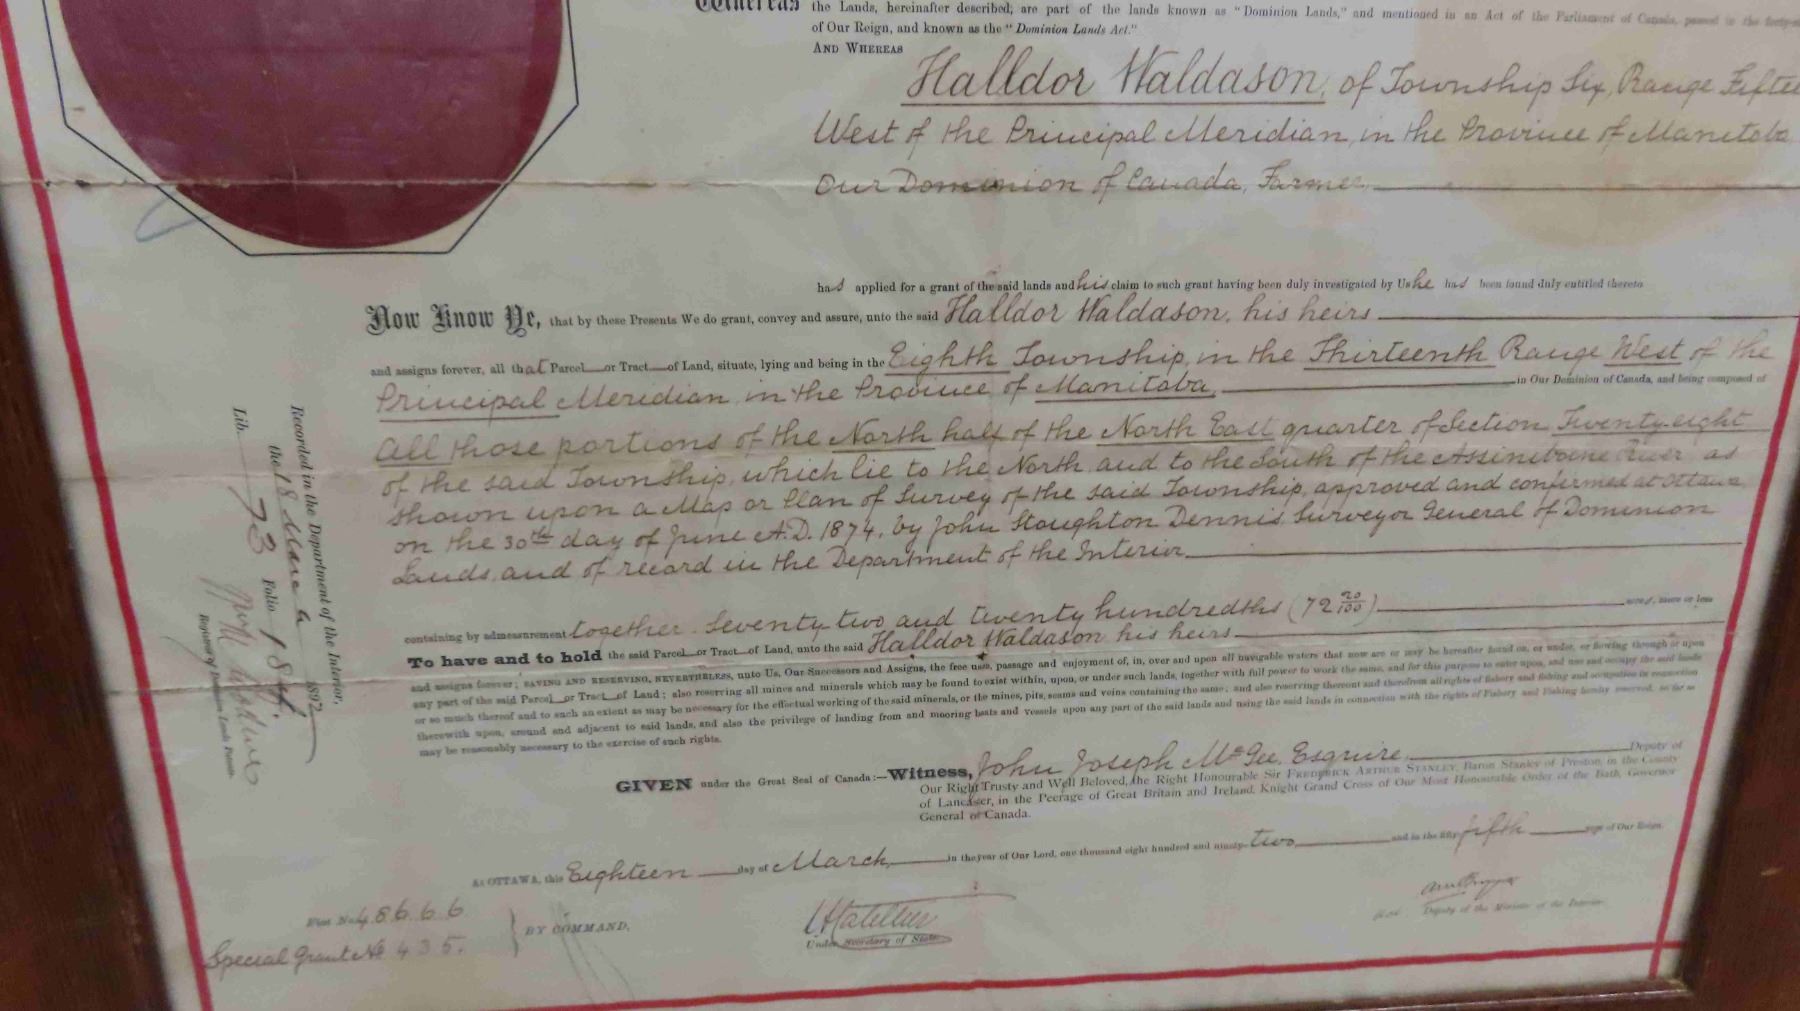 Whereas the Lands, hereinafter described, are part of the lands known as "Dominion Lands," and mentioned in an Act of the Parliament of Canada, passed in the
of Our Reign, and known as the "Dominion Lands Act."
AND WHEREAS
Halldor Waldason, of Township Six, Range Fiftee
West of the Principal Meridian, in the Province of Manitoba
Our Dominion of Canada, Farmer,
has applied for a grant of the said lands and his claim to such grant having been duly investigated by Us he has been found duly entitled thereto
Now Know Ye, that by these Presents We do grant, convey and assure, unto the said Halldor Waldason, his heirs
and assigns forever, all that Parcel or Tract of Land, situate, lying and being in the Eighth Township, in the Thirteenth Range West of the
Principal Meridian in the Province of Manitoba, in Our Dominion of Canada, and being composed of
All those portions of the North half of the North East quarter of Section Twenty eight
of the said Township, which lie to the North and to the South of the Assiniboine River as
shown upon a Map or Plan of Survey of the said Township, approved and confirmed at Ottawa,
on the 30th day of June A.D. 1874, by John Stoughton Dennis, Surveyor General of Dominion
Lands, and of record in the Department of the Interior
containing by admeasurement together Seventy two and twenty hundredths (72 20/100) acres, more or less
To have and to hold the said Parcel or Tract of Land, unto the said Halldor Waldason his heirs
and assigns forever; SAVING AND RESERVING, NEVERTHELESS, unto Us, Our Successors and Assigns, the free uses, passage and enjoyment of, in, over and upon all navigable waters that now are or may be hereafter found on, or under, or flowing through or upon
any part of the said Parcel or Tract of Land; also reserving all mines and minerals which may be found to exist within, upon, or under such lands, together with full power to work the same, and for this purpose to enter upon, and use and occupy the said lands
or so much thereof and to such an extent as may be necessary for the effectual working of the said minerals, or the mines, pits, seams and veins containing the same; and also reserving thereout and therefrom all rights of fishery and fishing and occupation in connection
therewith upon, around and adjacent to said lands, and also the privilege of landing from and mooring boats and vessels upon any part of the said lands and using the said lands in connection with the rights of Fishery and Fishing hereby reserved, so far as
may be reasonably necessary to the exercise of such rights.
GIVEN under the Great Seal of Canada:—Witness, John Joseph McGee, Esquire, Deputy of
Our Right Trusty and Well Beloved, the Right Honourable Sir FREDERICK ARTHUR STANLEY, Baron Stanley of Preston, in the County
of Lancaster, in the Peerage of Great Britain and Ireland, Knight Grand Cross of Our Most Honourable Order of the Bath, Governor
General of Canada.
At OTTAWA, this Eighteen day of March, in the year of Our Lord, one thousand eight hundred and ninety-two and in the fifty fifth year of Our Reign.
BY COMMAND,
Under Secretary of State
Deputy of the Minister of the Interior.
48666
Special Grant No 435.
Recorded in the Department of the Interior,
the 18 March 1892
Lib. 73 Folio 184
Registrar of Dominion Lands Patents.